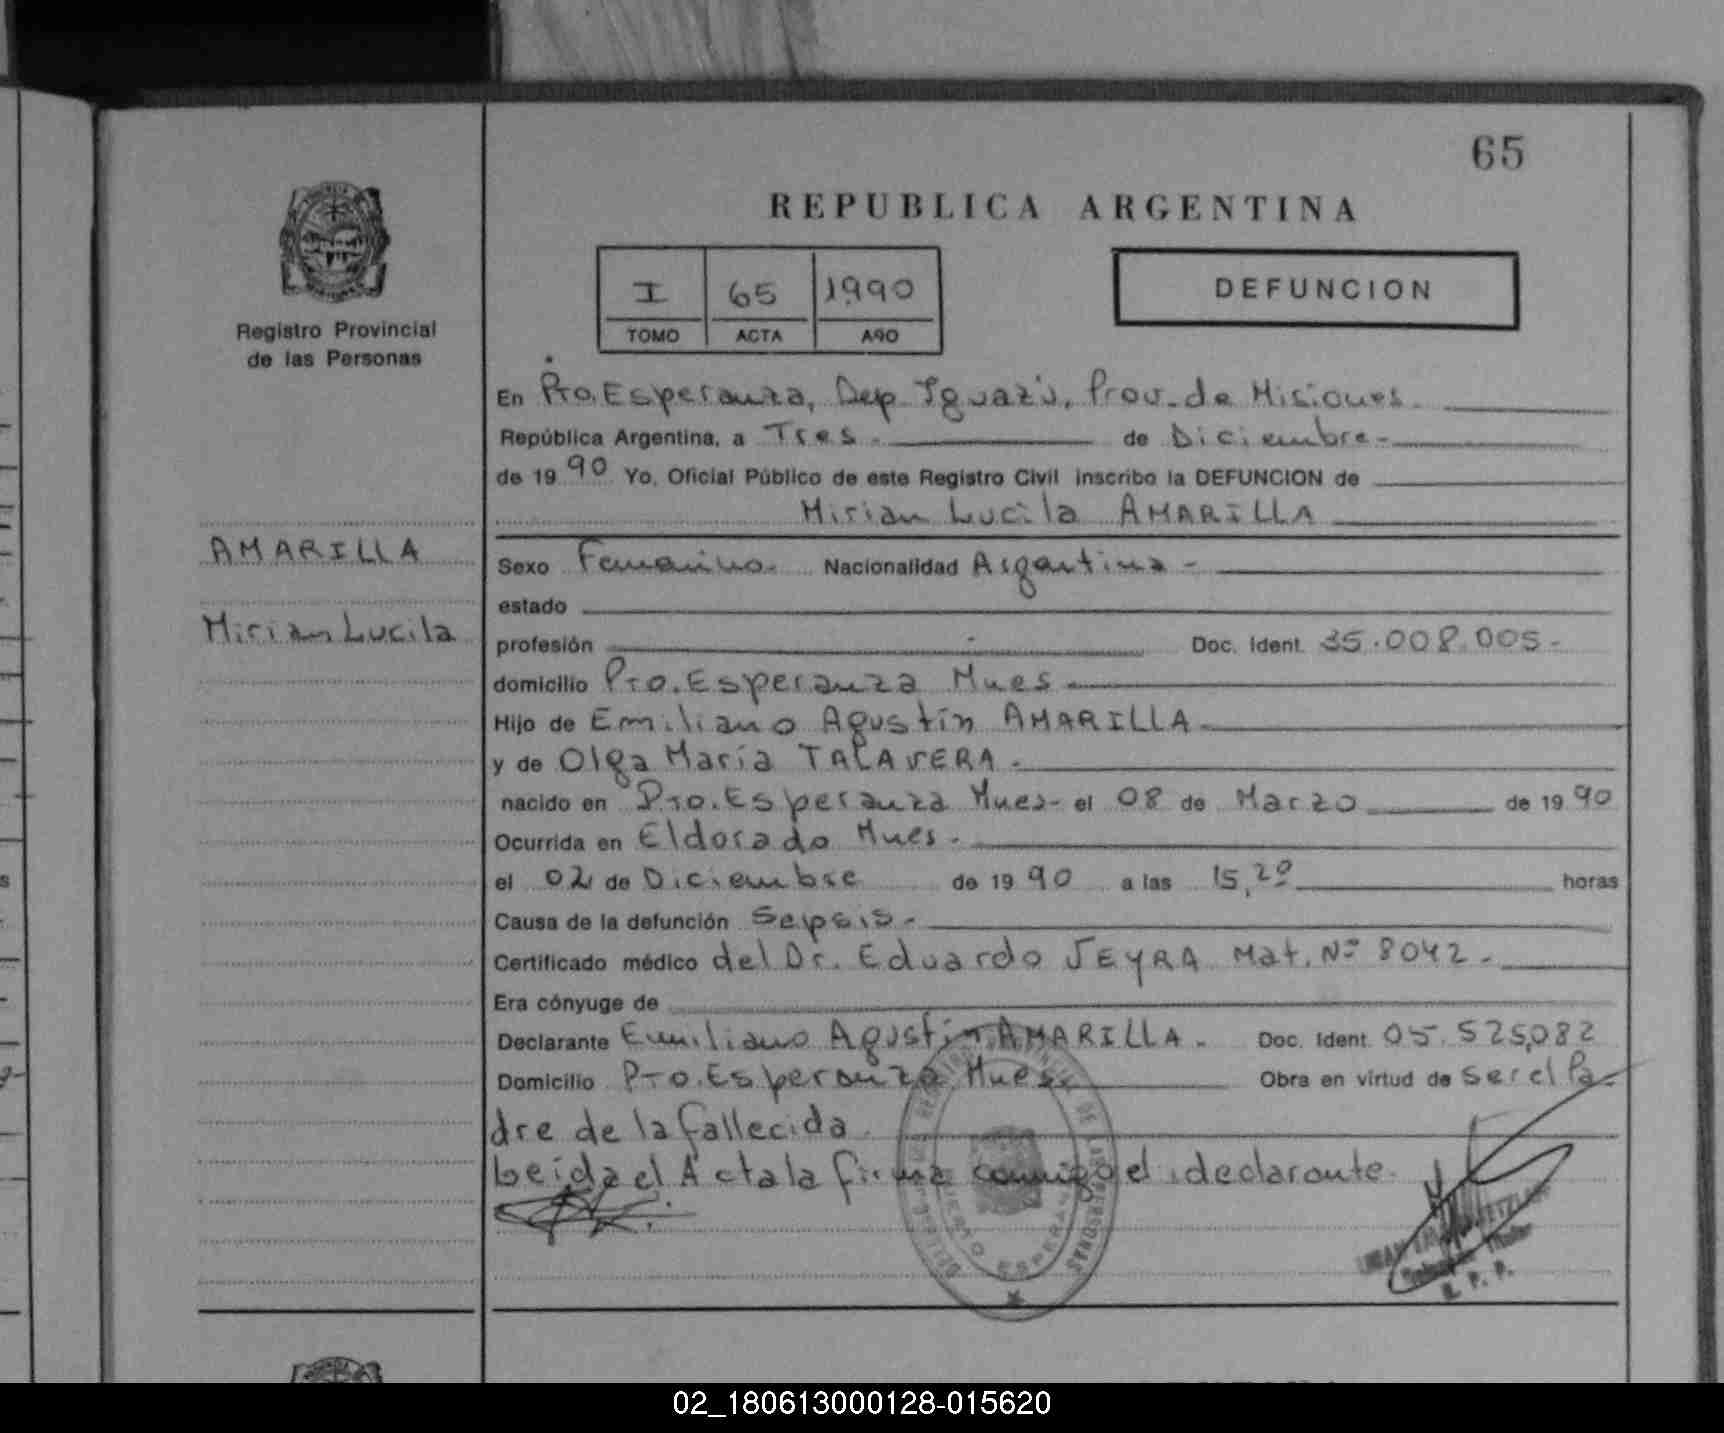 65
REPUBLICA ARGENTINA
I 65 1990
TOMO ACTA AÑO
DEFUNCION
Registro Provincial
de las Personas
AMARILLA
Mirian Lucila
En Pto. Esperanza, Dep. Iguazú, Prov. de Misiones.
República Argentina, a Tres. de Diciembre-
de 19 90 Yo, Oficial Público de este Registro Civil inscribo la DEFUNCION de
Mirian Lucila AMARILLA
Sexo Femenino. Nacionalidad Argentina -
estado
profesión Doc. Ident. 35.008.005-
domicilio Pto. Esperanza Mnes -
Hijo de Emiliano Agustín AMARILLA
y de Olga María TALAVERA.
nacido en Pto. Esperanza Mnes- el 08 de Marzo de 19 90
Ocurrida en Eldorado Mnes.
el 02 de Diciembre de 19 90 a las 15,20 horas
Causa de la defunción Sepsis-
Certificado médico del Dr. Eduardo JEYRA Mat. Nº 8042.-
Era cónyuge de
Declarante Emiliano Agustín AMARILLA. Doc. Ident. 05.525,082
Domicilio Pto. Esperanza Mnes. Obra en virtud de ser el Pa-
dre de la fallecida.
Leida el Acta la firma conmigo el declarante.
DE LAS PERSONAS
PUERTO ESPERANZA
Titular
R. P. P.
02_180613000128-015620